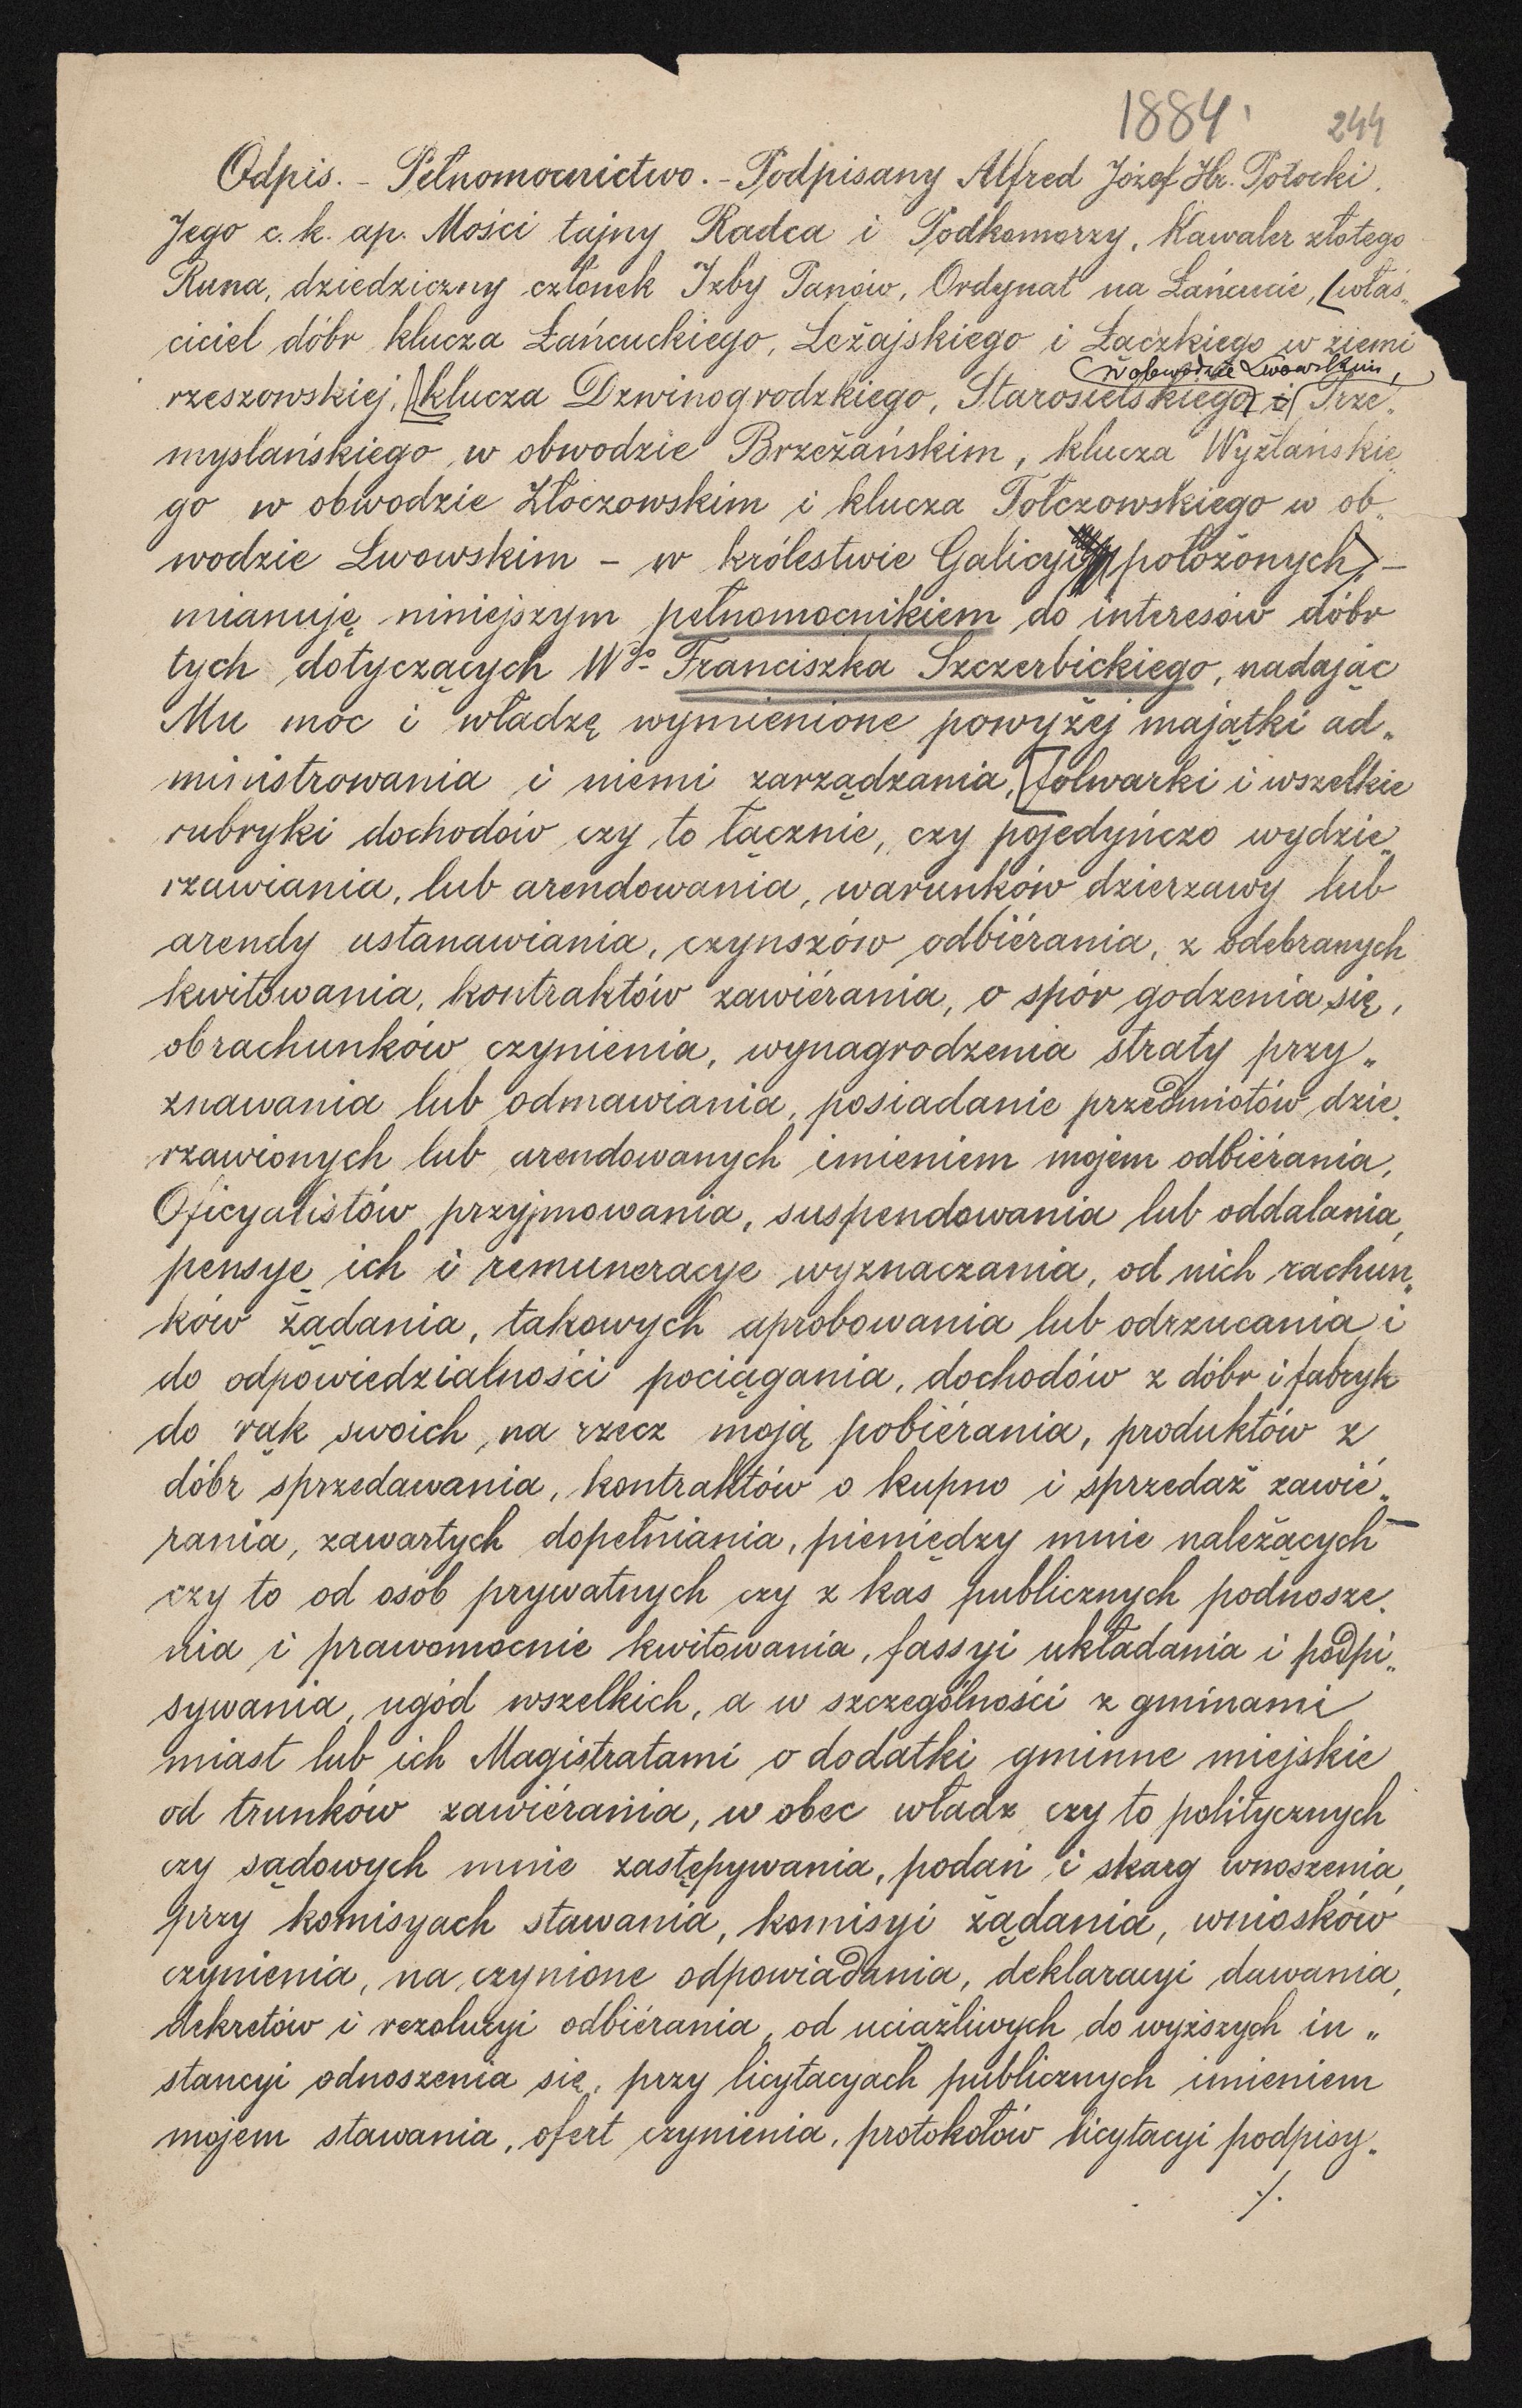 1884.
244
Odpis. - Pełnomocnictwo. - Podpisany Alfred Józef Hr. Potocki.
Jego c. k. ap. Mości tajny Radca i Podkomorzy, Kawaler złotego
Runa, dziedziczny członek Izby Panów, Ordynat na Łańcucie, (właś„
ciciel dóbr klucza Łańcuckiego, Leżajskiego i Łączkiego w ziemi
w obwodzie Lwowskim,
rzeszowskiej, [klucza Dzwinogrodzkiego, Starosielskiego) i (Prze„
myslańskiego w obwodzie Brzeżańskim, klucza Wyżlańskie„
go w obwodzie Złoczowskim i klucza Tołczowskiego w ob„
wodzie Lwowskim - w królestwie Galicyi położonych), -
mianuję niniejszym pełnomocnikiem do interesów dóbr
tych dotyczących Wgo Franciszka Szczerbickiego, nadając
Mu moc i władzę wymienione powyżej majątki ad„
ministrowania i niemi zarządzania, [folwarki i wszelkie
rubryki dochodów czy to łącznie, czy pojedyńczo wydzie„
rzawiania, lub arendowania, warunków dzierzawy lub
arendy ustanawiania, czynszów odbiérania, z odebranych
kwitowania, kontraktów zawiérania, o spór godzenia się,
obrachunków czynienia, wynagrodzenia straty przy„
znawania lub odmawiania, posiadanie przedmiotów dzie„
rzawionych lub arendowanych imieniem mojem odbiérania,
Oficyalistów przyjmowania, suspendowania lub oddalania,
pensye ich i remuneracye wyznaczania, od nich rachun„
ków żądania, takowych aprobowania lub odrzucania i
do odpowiedzialności pociągania, dochodów z dóbr i fabryk
do rąk swoich na rzecz moją pobiérania, produktów z
dóbr sprzedawania, kontraktów o kupno i sprzedaż zawié„
rania, zawartych dopełniania, pieniędzy mnie należących
czy to od osób prywatnych czy z kas publicznych podnosze„
nia i prawomocnie kwitowania, fassyi układania i podpi„
sywania, ugód wszelkich, a w szczególności z gminami
miast lub ich Magistratami o dodatki gminne miejskie
od trunków zawiérania, w obec władz czy to politycznych
czy sądowych mnie zastępywania, podań i skarg wnoszenia,
przy komisyach stawania, komisyi żądania, wniosków
czynienia, na czynione odpowiadania, deklaracyi dawania,
dekretów i rezolucyi odbiérania, od uciążliwych do wyższych in„
stancyi odnoszenia się, przy licytacyach publicznych imieniem
mojem stawania, ofert czynienia, protokołów licytacyi podpisy„
./.